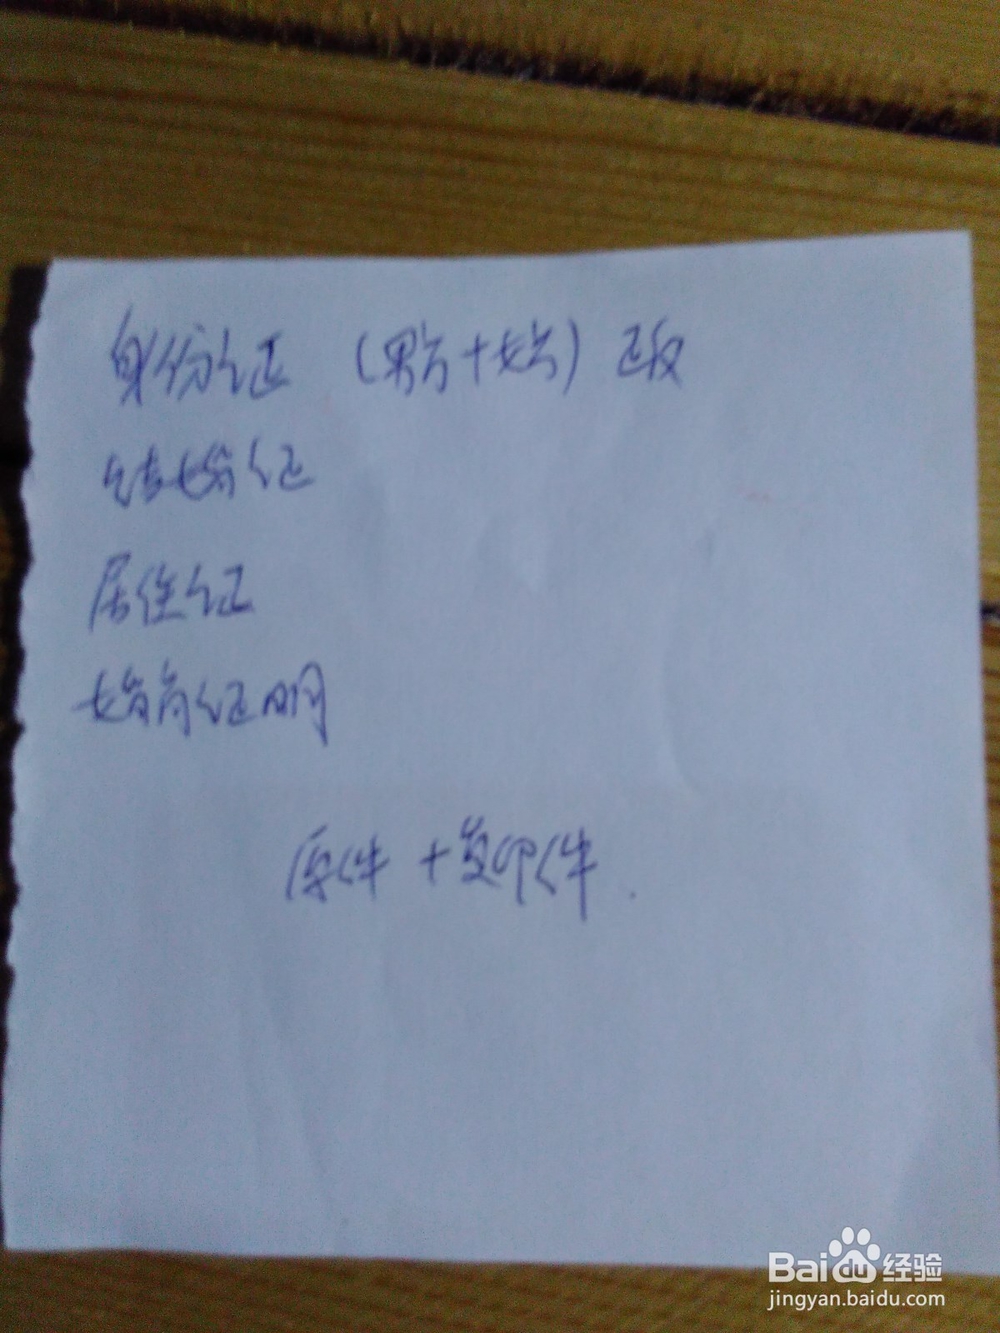 身份证 (男方+女方) 正反
结婚证
居住证
婚育证明
原件+复印件.
Baidu经验
jingyan.baidu.com